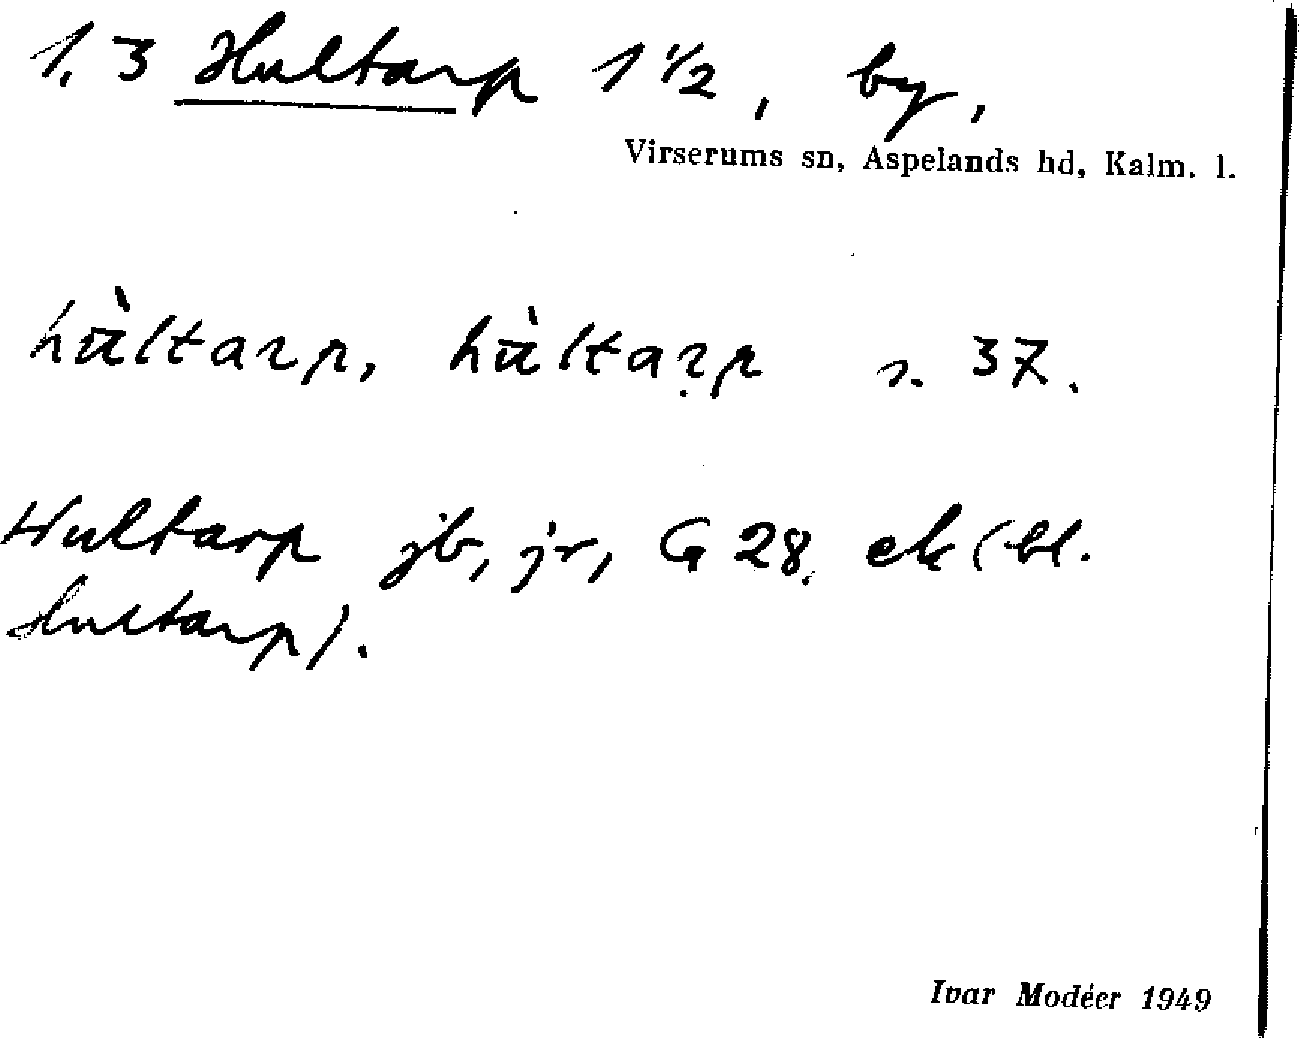 1,3 Hultarp 1 1/2, by,
Virserums sn, Aspelands hd, Kalm. l.
hùltarp, hùltaṛp s. 37.
Hultarp jb, jr, G 28, ek (bl.
Hultarp).
Ivar Modéer 1949